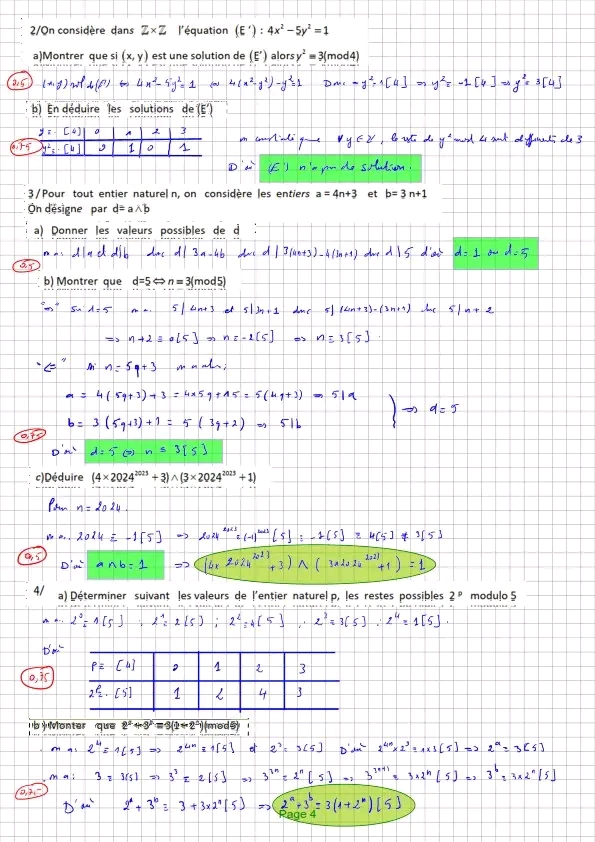 2/On considère dans ℤ×ℤ l'équation (E'): 4x² – 5y² = 1
a)Montrer que si (x, y) est une solution de (E') alors y² ≡ 3(mod4)
2,5 (x,y) sol de (E') ⇔ 4x² - 5y² = 1 ⇔ 4(x²-y²) - y² = 1 Donc -y² ≡ 1[4] ⇒ y² ≡ -1[4] ⇒ y² ≡ 3[4]
b) En déduire les solutions de (E')
y ≡ · [4] 0 1 2 3
0,75 y² ≡ · [4] 0 1 0 1 on constate que ∀ y ∈ ℤ, le reste de y² mod 4 sont différents de 3
D'où (E') n'a pas de solution.
3/Pour tout entier naturel n, on considère les entiers a = 4n+3 et b= 3 n+1
On désigne par d= a∧b
a) Donner les valeurs possibles de d
0,5 m a: d|a et d|b donc d| 3a-4b donc d| 3(4n+3)-4(3n+1) donc d|5 d'où d=1 ou d=5
b) Montrer que d=5⇔n≡3(mod5)
"⇒" Si d=5 m a. 5| 4n+3 et 5|3n+1 donc 5| (4n+3)-(3n+1) donc 5|n+2
⇒ n+2 ≡ 0[5] ⇒ n ≡ -2[5] ⇒ n ≡ 3[5].
"⇐" si n = 5q+3 m a:
a = 4(5q+3)+3 = 4x5q+15 = 5(4q+3) ⇒ 5|a
b = 3(5q+3)+1 = 5(3q+2) ⇒ 5|b ⇒ d=5
0,75 D'où d=5 ⇔ n ≡ 3[5]
c)Déduire (4×2024²⁰²³ +3)∧(3×2024²⁰²³ +1)
Pour n = 2024.
m a. 2024 ≡ -1[5] ⇒ 2024²⁰²³ ≡ (-1)²⁰²³ [5] ≡ -1[5] ≡ 4[5] ≢ 3[5]
0,5 D'où a∧b=1 ⇒ (4x 2024²⁰²³ +3) ∧ (3x2024²⁰²³ +1) = 1
4/ a) Déterminer suivant les valeurs de l'entier naturel p, les restes possibles 2 ᵖ modulo 5
m a. 2⁰ ≡ 1[5] ; 2¹ ≡ 2[5] ; 2² ≡ 4[5] ; 2³ ≡ 3[5] ; 2⁴ ≡ 1[5].
D'où
P ≡ [4] 0 1 2 3
0,75 2ᵖ ≡ · [5] 1 2 4 3
b )Monter que 2ᵃ +3ᵇ ≡ 3(1+2ⁿ)(mod5)
m a: 2⁴ ≡ 1[5] ⇒ 2⁴ⁿ ≡ 1[5] et 2³ ≡ 3[5] D'où 2⁴ⁿ x 2³ ≡ 1x3[5] ⇒ 2ᵃ ≡ 3[5]
m a: 3 ≡ 3[5] ⇒ 3³ ≡ 2[5] ⇒ 3³ⁿ ≡ 2ⁿ[5] ⇒ 3³ⁿ⁺¹ ≡ 3x2ⁿ[5] ⇒ 3ᵇ ≡ 3x2ⁿ[5]
0,75 D'où 2ᵃ + 3ᵇ ≡ 3 + 3x2ⁿ[5] ⇒ 2ᵃ + 3ᵇ ≡ 3(1+2ⁿ)[5]
Page 4